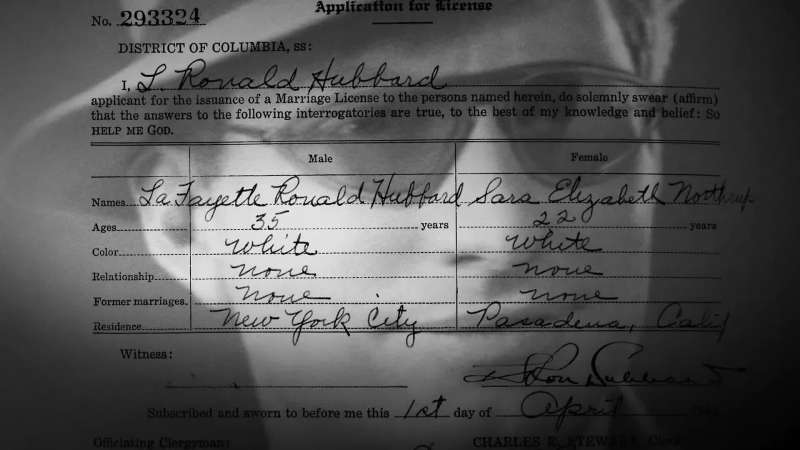 Application for License
No. 293324
DISTRICT OF COLUMBIA, ss:
I, L. Ronald Hubbard
applicant for the issuance of a Marriage License to the persons named herein, do solemnly swear (affirm)
that the answers to the following interrogatories are true, to the best of my knowledge and belief: So
HELP ME GOD.
Male Female
Names La Fayette Ronald Hubbard Sara Elizabeth Northrup
Ages 35 years 22 years
Color White White
Relationship none none
Former marriages. none none
Residence New York City Pasadena, Calif
Witness:
L Ron Hubbard
Subscribed and sworn to before me this 1st day of April
Officiating Clergyman: CHARLES E. STEWART, Clerk